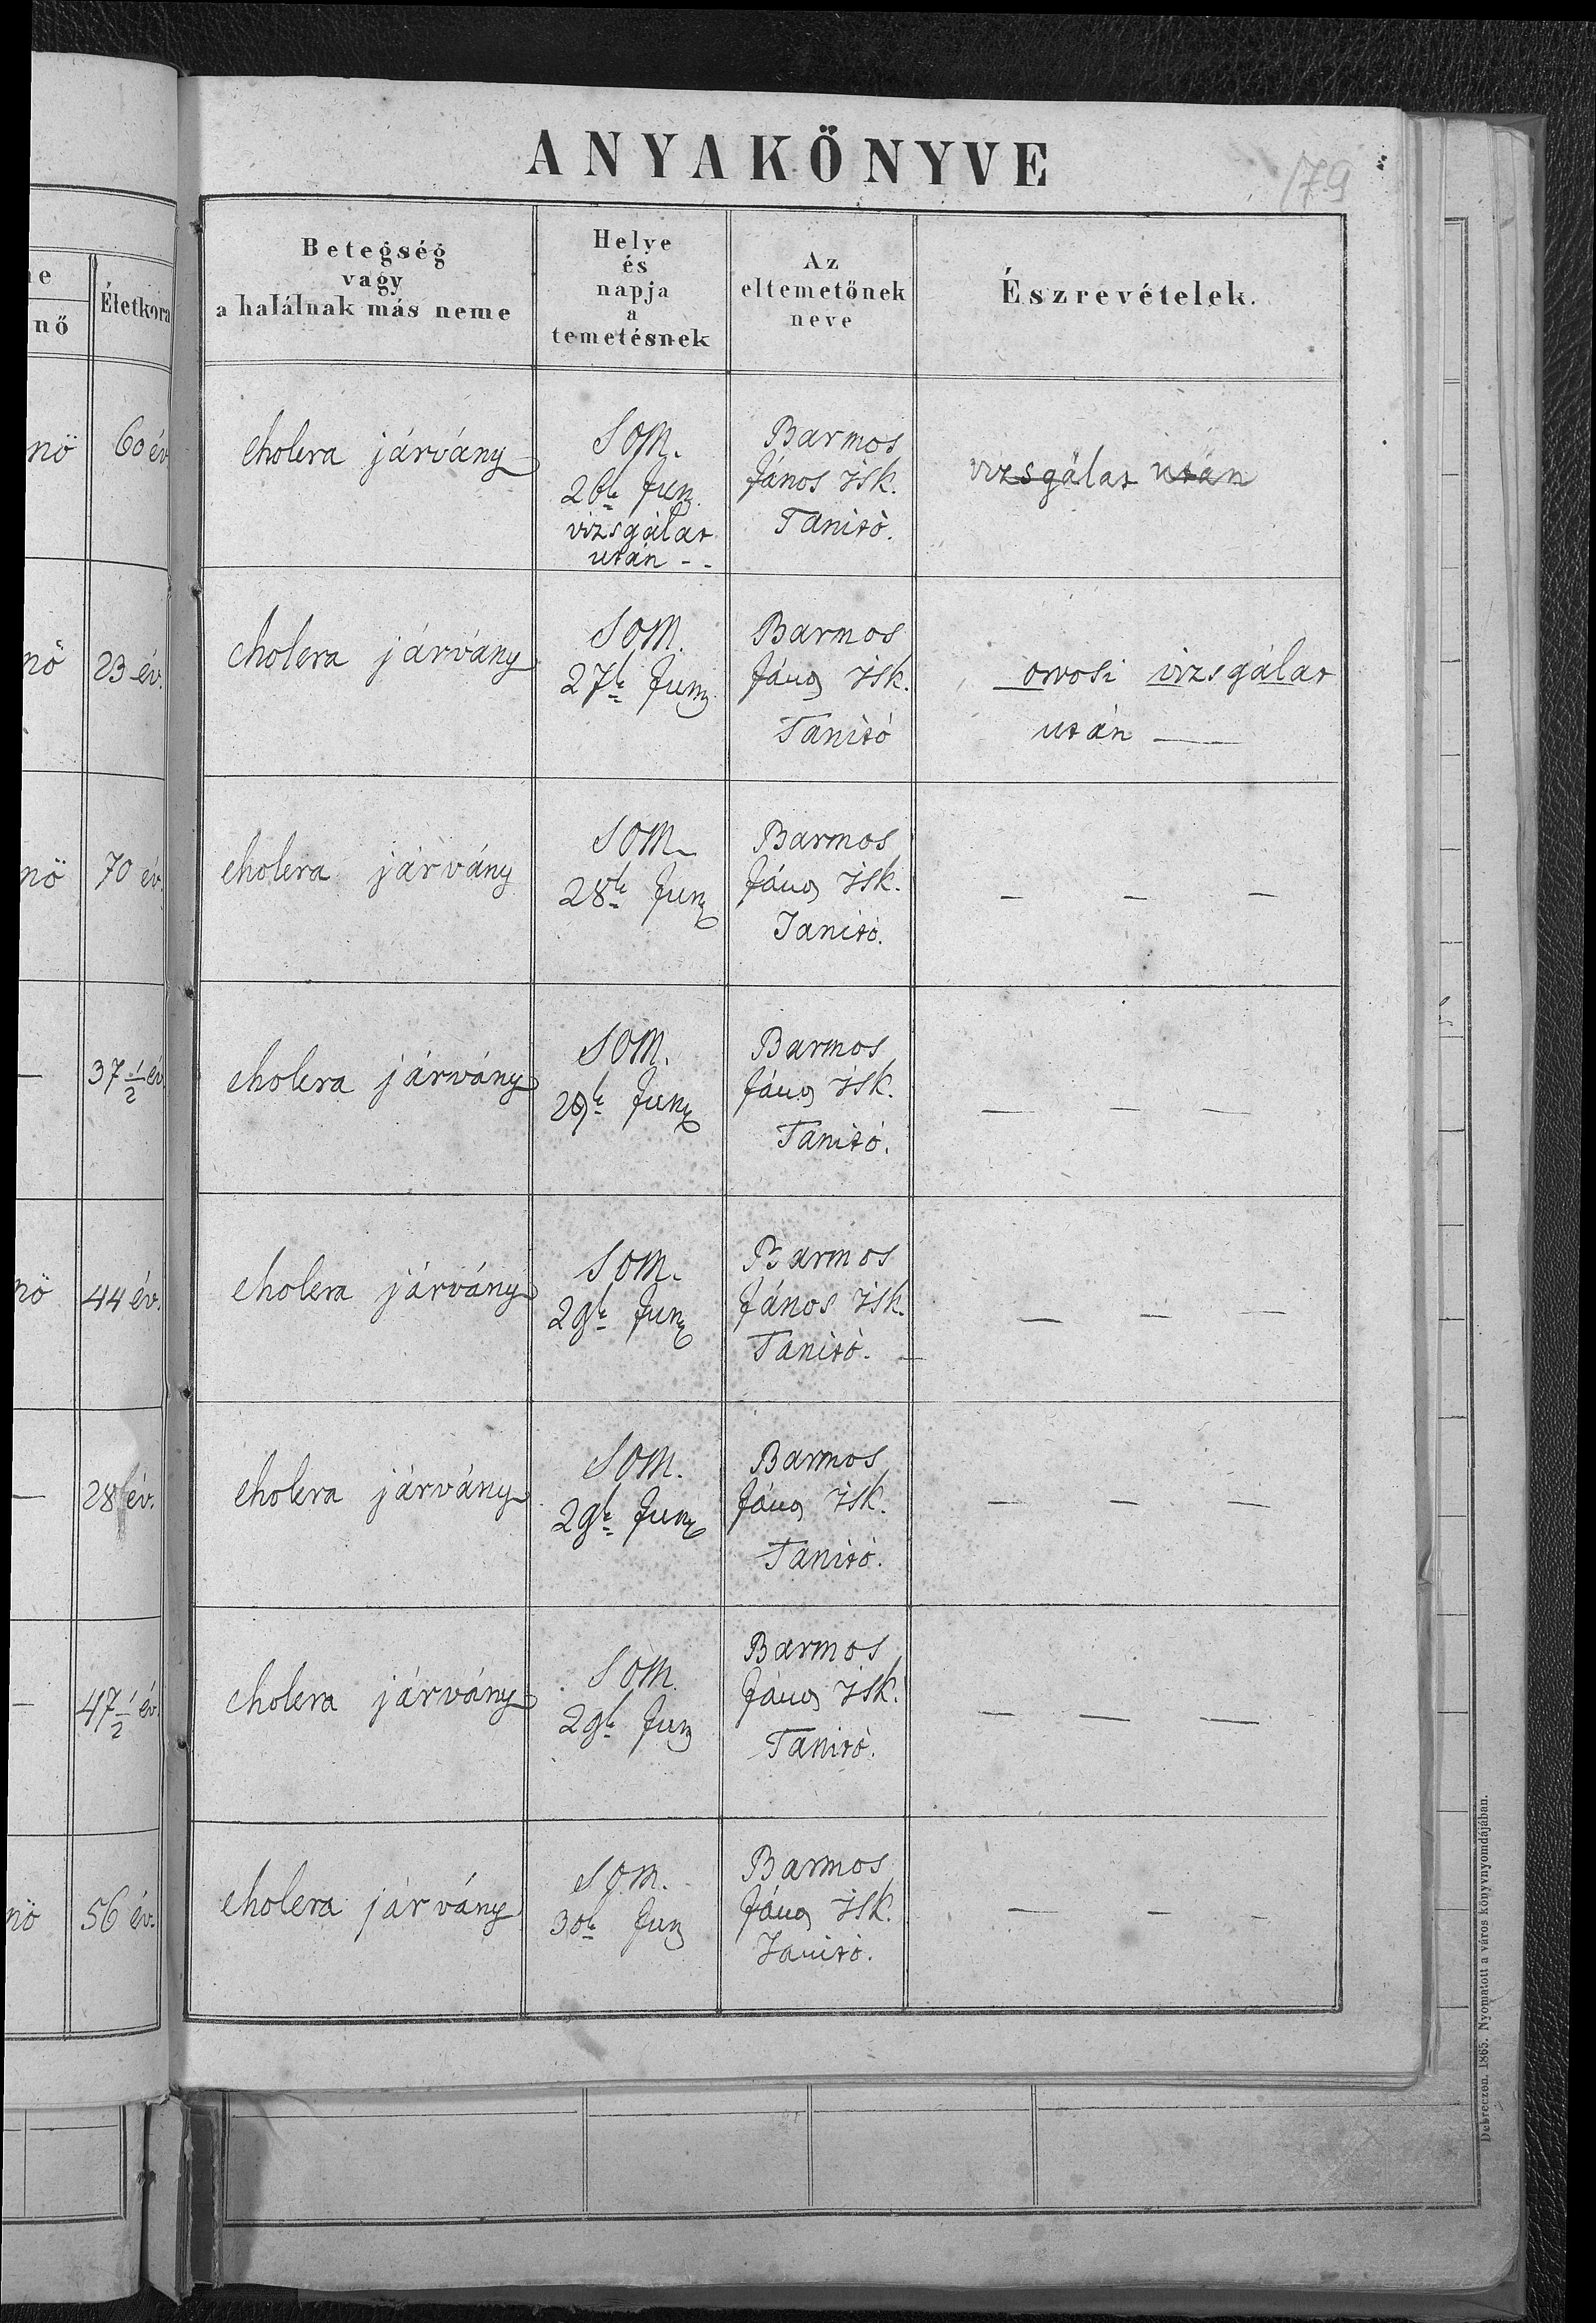 ANYAKÖNYVE
179
nő
Életkora
Betegség
vagy
a halálnak más neme
Helye
és
napja
a
temetésnek
Az
eltemetőnek
neve
Észrevételek.
nö
60 év
cholera járvány
SOM.
26k Jun
vizsgálat
után - -
Barmos
János isk.
Tanitò.
vizsgálat után
nö
23 év.
cholera járvány
SOM.
27k Jun
Barmos
János isk.
Tanitó
orvosi vizsgálat
után —
nö
70 év.
cholera járvány
SOM
28k Jun
Barmos
János isk.
Tanitò.
— — —
—
37 1/2 év
cholera járvány
SOM.
29k Jun
Barmos
János isk.
Tanitó.
— — —
nö
44 év.
cholera járvány
SOM.
29k Jun
Barmos
János isk.
Tanitò. —
— — —
—
28 év.
cholera járvány
SOM.
29k Jun
Barmos
János isk.
Tanitò.
— — —
—
47 1/2 év.
cholera járvány
SOM.
29k Jun
Barmos
János isk.
Tanitò.
— — —
nö
56 év.
cholera járvány
SOM.
30k Jun
Barmos
János isk.
Tanitò.
— — -
Debreczen. 1865. Nyomatott a város könyvnyomdájában.